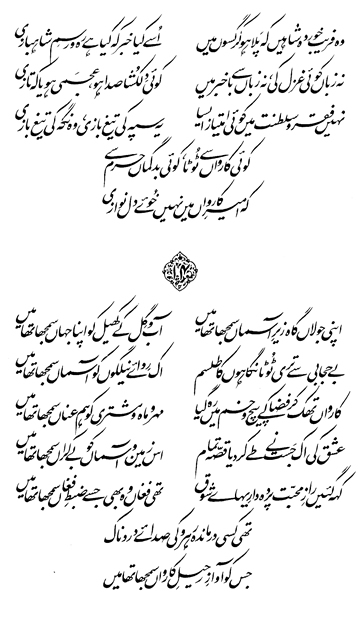 وہ فریب خوردہ شاہیں کہ پلا ہو کرگسوں میں اُسے کیا خبر کہ کیا ہے رہ و رسمِ شاہبازی
نہ زباں کوئی غزل کی نہ زباں سے باخبر میں کوئی دلکشا صدا ہو، عجمی ہو یا کہ تازی
نہیں فقر و سلطنت میں کوئی امتیاز ایسا یہ سپہ کی تیغ بازی وہ نگہ کی تیغ بازی
کوئی کارواں سے ٹوٹا کوئی بدگماں حرم سے
کہ امیرِ کارواں میں نہیں خوئے دل نوازی
۱۴
اپنی جولاں گاہ زیرِ آسماں سمجھا تھا میں آب و گل کے کھیل کو اپنا جہاں سمجھا تھا میں
بے حجابی سے تری ٹوٹا نگاہوں کا طلسم اک ردائے نیلگوں کو آسماں سمجھا تھا میں
کارواں تھک کر فضا کے پیچ و خم میں رہ گیا مہر و ماہ و مشتری کو ہم عناں سمجھا تھا میں
عشق کی اک جست نے طے کر دیا قصہ تمام اس زمین و آسماں کو بے کراں سمجھا تھا میں
کہہ گئیں رازِ محبت پردہ داریہائے شوق تھی فغاں وہ بھی جسے ضبطِ فغاں سمجھا تھا میں
تھی کسی درماندہ رہرو کی صدائے دردناک
جس کو آوازِ رحیلِ کارواں سمجھا تھا میں